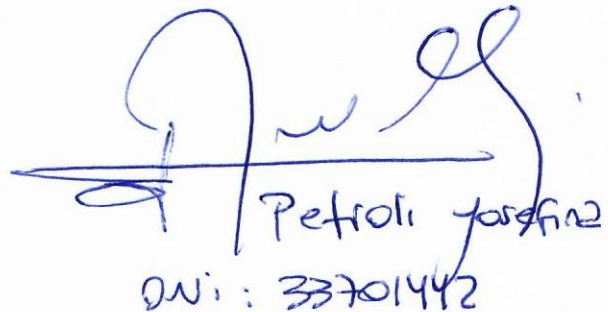 Petroli Josefina
DNi: 33701442